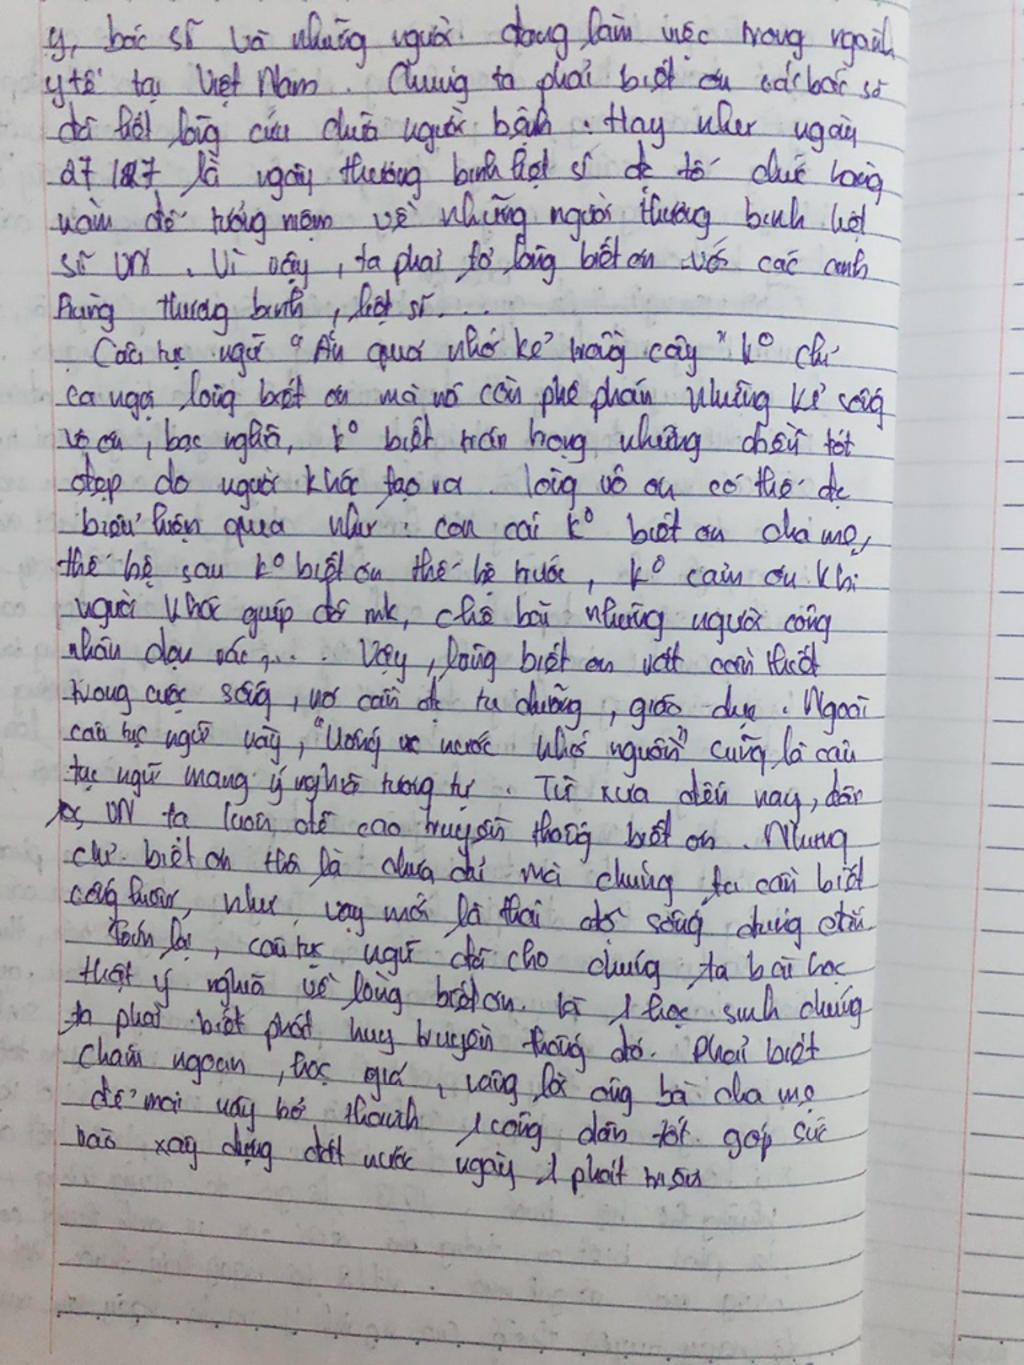 y, bác sĩ và những người đang làm việc trong ngành
y tế tại Việt Nam. Chúng ta phải biết ơn các bác sĩ
đã hết lòng cứu chữa người bệnh. Hay như ngày
27/7 là ngày thương binh liệt sĩ đc tổ chức hàng
năm để tưởng niệm về những người thương binh liệt
sĩ VN. Vì vậy, ta phải tỏ lòng biết ơn với các anh
hùng thương binh, liệt sĩ...
Câu tục ngữ "Ăn quả nhớ kẻ trồng cây" k° chỉ
ca ngợi lòng biết ơn mà nó còn phê phán những kẻ sống
vô ơn, bạc nghĩa, k° biết trân trọng những điều tốt
đẹp do người khác tạo ra. Lòng vô ơn có thể đc
biểu hiện qua như: con cái k° biết ơn cha mẹ,
thế hệ sau k° biết ơn thế hệ trước, k° cảm ơn khi
người khác giúp đỡ mk, chê bai những người công
nhân dọn rác,... Vậy, lòng biết ơn rất cần thiết
trong cuộc sống, nó cần đc tu dưỡng, giáo dục. Ngoài
câu tục ngữ này, "Uống nước nhớ nguồn" cũng là câu
tục ngữ mang ý nghĩa tương tự. Từ xưa đến nay, dân
tộc VN ta luôn đề cao truyền thống biết ơn. Nhưng
chỉ biết ơn thôi là chưa đủ mà chúng ta cần biết
như vậy mới là thái độ sống đúng đắn.
Tóm lại, câu tục ngữ đã cho chúng ta bài học
thật ý nghĩa về lòng biết ơn. Là 1 học sinh chúng
ta phải biết phát huy truyền thống đó. Phải biết
chăm ngoan, học giỏi, vâng lời ông bà cha mẹ
để mai này trở thành 1 công dân tốt góp sức
vào xây dựng đất nước ngày 1 phát triển